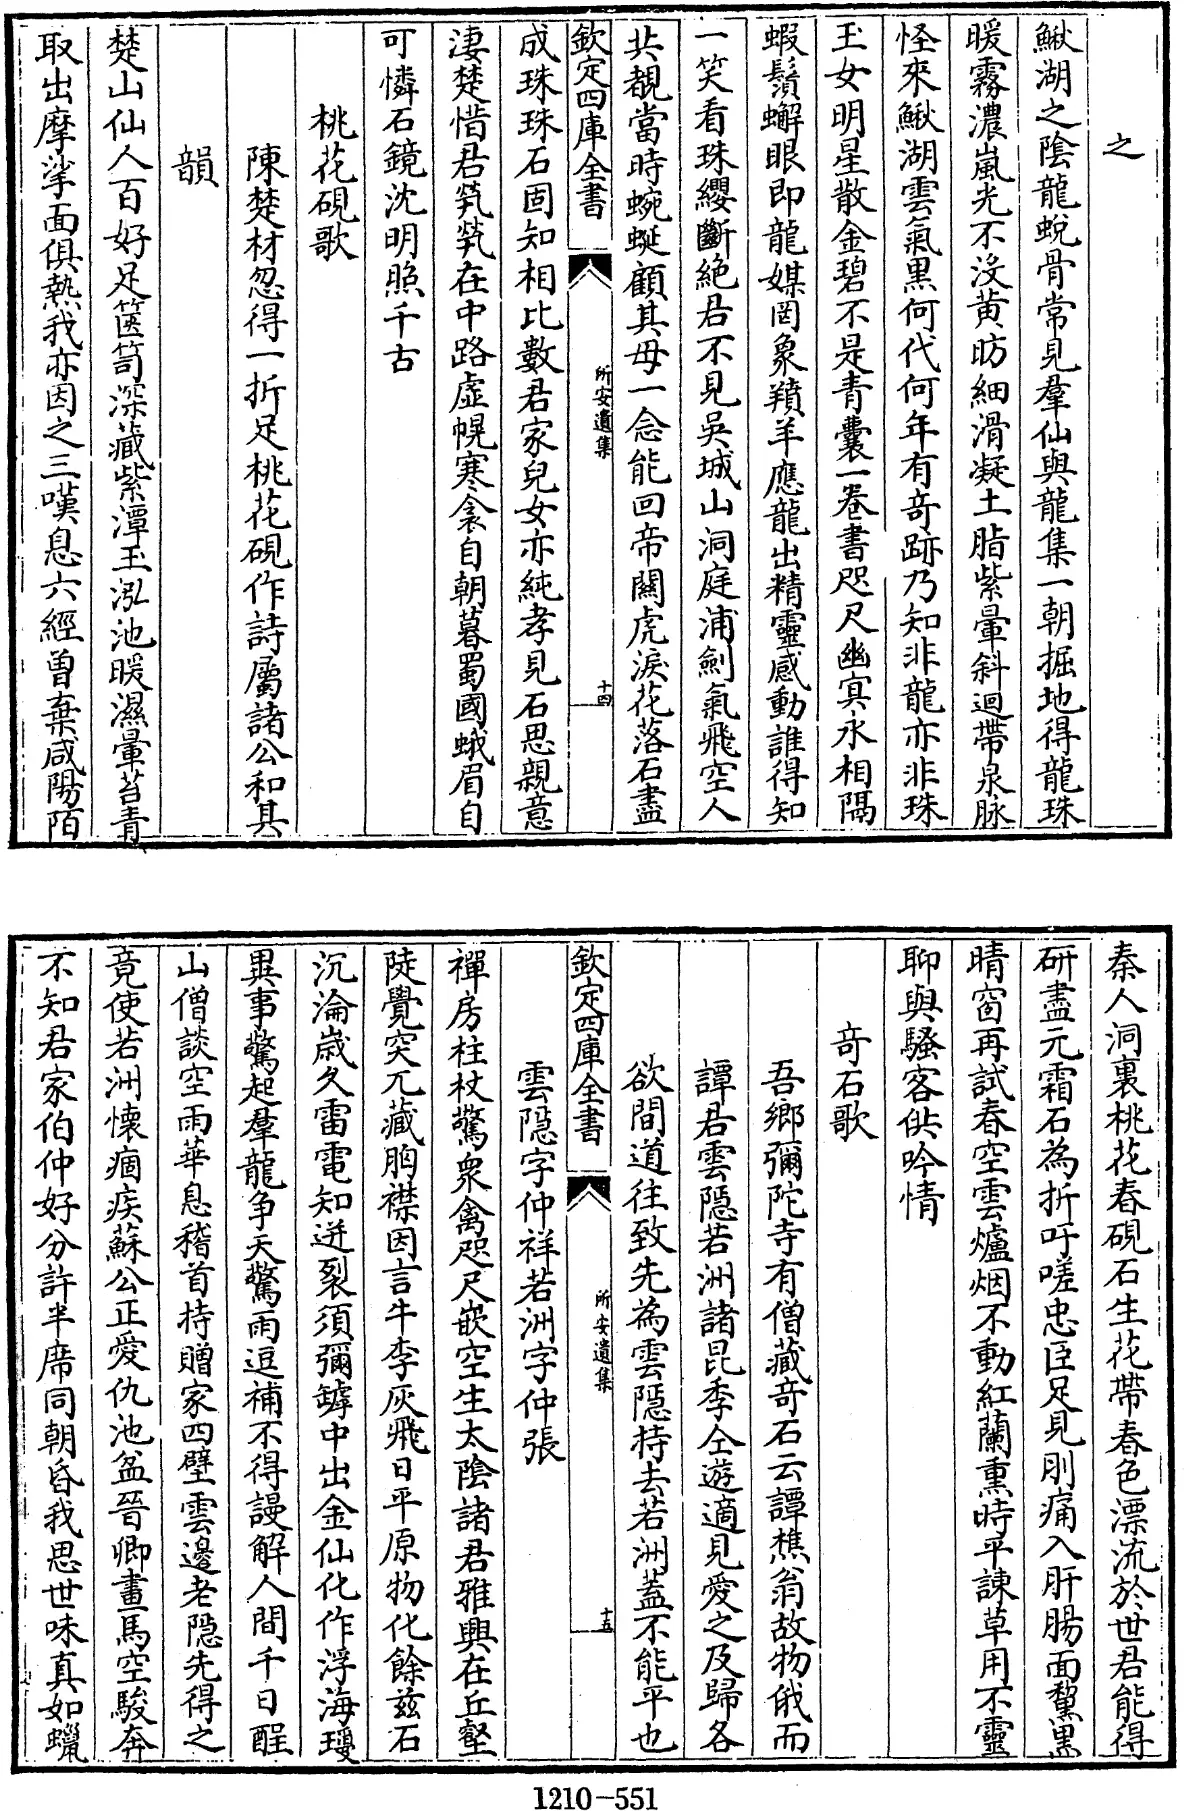 之
鰍湖之陰龍蛻骨常見羣仙與龍集一朝掘地得龍珠
暖霧濃嵐光不沒黄昉細滑凝土脂紫暈斜迴帶泉脉
怪來鰍湖雲氣黒何代何年有竒跡乃知非龍亦非珠
玉女明星散金碧不是青囊一卷書咫尺幽㝠永相隔
蝦鬚蠏眼即龍媒罔象羵羊應龍出精靈感動誰得知
一笑看珠纓斷絶君不見吳城山洞庭浦劍氣飛空人
共覩當時蜿蜒顧其母一念能回帝闕虎淚花落石盡
欽定四庫全書
所安遺集
十四
成珠珠石固知相比數君家兒女亦純孝見石思親意
淒楚惜君煢煢在中路虛幌寒衾自朝暮蜀國蛾眉自
可憐石鏡沈明照千古
桃花硯歌
陳楚材忽得一折足桃花硯作詩屬諸公和其
韻
楚山仙人百好足篋笥深藏紫潭玉泓池暖濕暈苔青
取出摩挲面俱熱我亦因之三嘆息六經曽棄咸陽陌
秦人洞裏桃花春硯石生花帶春色漂流於世君能得
研盡元霜石為折吁嗟忠臣足見刖痛入肝腸面黧黒
晴窗再試春空雲爐烟不動紅蘭熏時平諫草用不靈
聊與騷客供吟情
竒石歌
吾鄉彌陀寺有僧藏竒石云譚樵翁故物俄而
譚君雲隱若洲諸昆季仝遊適見愛之及歸各
欲間道往致先為雲隱持去若洲蓋不能平也
欽定四庫全書
所安遺集
十五
雲隱字仲祥若洲字仲張
禪房柱杖驚衆禽咫尺嵌空生太陰諸君雅興在丘壑
陡覺突兀藏胸襟因言牛李灰飛日平原物化餘兹石
沉淪歲久雷電知迸裂須彌罅中出金仙化作浮海瓊
異事驚起羣龍爭天驚雨逗補不得謾解人間千日酲
山僧談空雨華息稽首持贈家四壁雲邊老隱先得之
竟使若洲懷痼疾蘇公正愛仇池盆晉卿畫馬空駿奔
不知君家伯仲好分許半席同朝昏我思世味真如蠟
1210-551